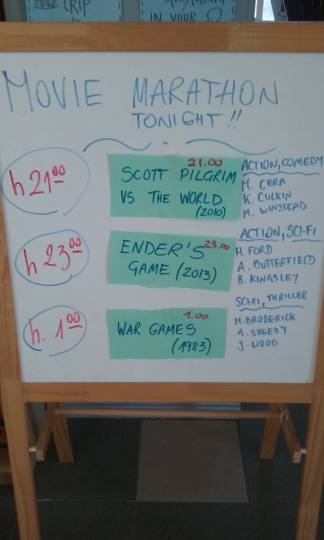 TRIP
IN YOUR
MOVIE MARATHON
TONIGHT!!
h 21⁰⁰
21.00
SCOTT PILGRIM
VS THE WORLD
(2010)
ACTION, COMEDY
M. CERA
K. CULKIN
M. WINSTEAD
h 23⁰⁰
ENDER'S 23.00
GAME (2013)
ACTION, SCI-FI
H. FORD
A. BUTTERFIELD
B. KINGSLEY
h. 1⁰⁰
1.00
WAR GAMES
(1983)
SCI-FI, THRILLER
M. BRODERICK
A. SHEEDY
J. WOOD